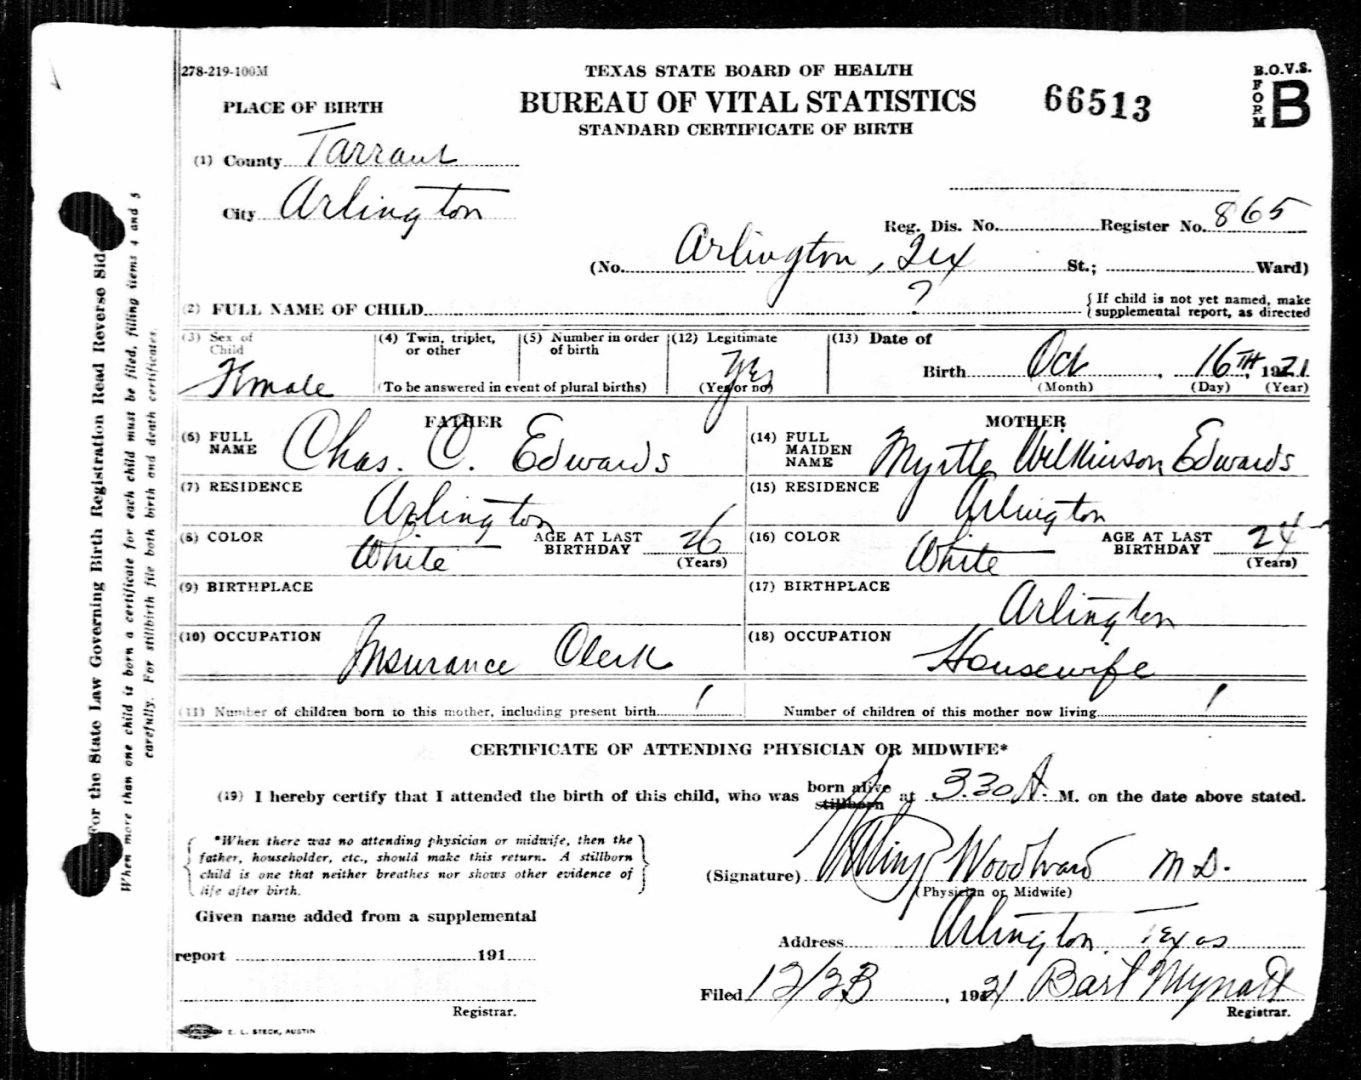 278-219-100M
TEXAS STATE BOARD OF HEALTH
BUREAU OF VITAL STATISTICS
STANDARD CERTIFICATE OF BIRTH
66513
B.O.V.S.
FORM B
PLACE OF BIRTH
(1) County Tarrant
City Arlington
Reg. Dis. No. Register No. 865
(No. Arlington, Tex St.; Ward)
(2) FULL NAME OF CHILD ? { If child is not yet named, make
supplemental report, as directed
(3) Sex of Child Female
(4) Twin, triplet, or other
(5) Number in order of birth
(To be answered in event of plural births)
(12) Legitimate Yes (Yes or no)
(13) Date of Birth Oct 16TH, 1921
(Month) (Day) (Year)
FATHER
(6) FULL NAME Chas. C. Edwards
(7) RESIDENCE Arlington
(8) COLOR White AGE AT LAST BIRTHDAY 26 (Years)
(9) BIRTHPLACE
(10) OCCUPATION Insurance Clerk
MOTHER
(14) FULL MAIDEN NAME Myrtle Wilkinson Edwards
(15) RESIDENCE Arlington
(16) COLOR White AGE AT LAST BIRTHDAY 24 (Years)
(17) BIRTHPLACE Arlington
(18) OCCUPATION Housewife
(11) Number of children born to this mother, including present birth 1 Number of children of this mother now living 1
CERTIFICATE OF ATTENDING PHYSICIAN OR MIDWIFE*
(19) I hereby certify that I attended the birth of this child, who was born alive stillborn at 3.30 A. M. on the date above stated.
{ *When there was no attending physician or midwife, then the
father, householder, etc., should make this return. A stillborn
child is one that neither breathes nor shows other evidence of
life after birth. }
(Signature) Woodward M D.
(Physician or Midwife)
Given name added from a supplemental
report 191
Registrar.
Address Arlington, Texas
Filed 12/23, 1921 Bart Mynatt
Registrar.
E. L. STECK, AUSTIN
For the State Law Governing Birth Registration Read Reverse Sid
When more than one child is born a certificate for each child must be filed, filling items 4 and 5
carefully. For stillbirth file both birth and death certificates.